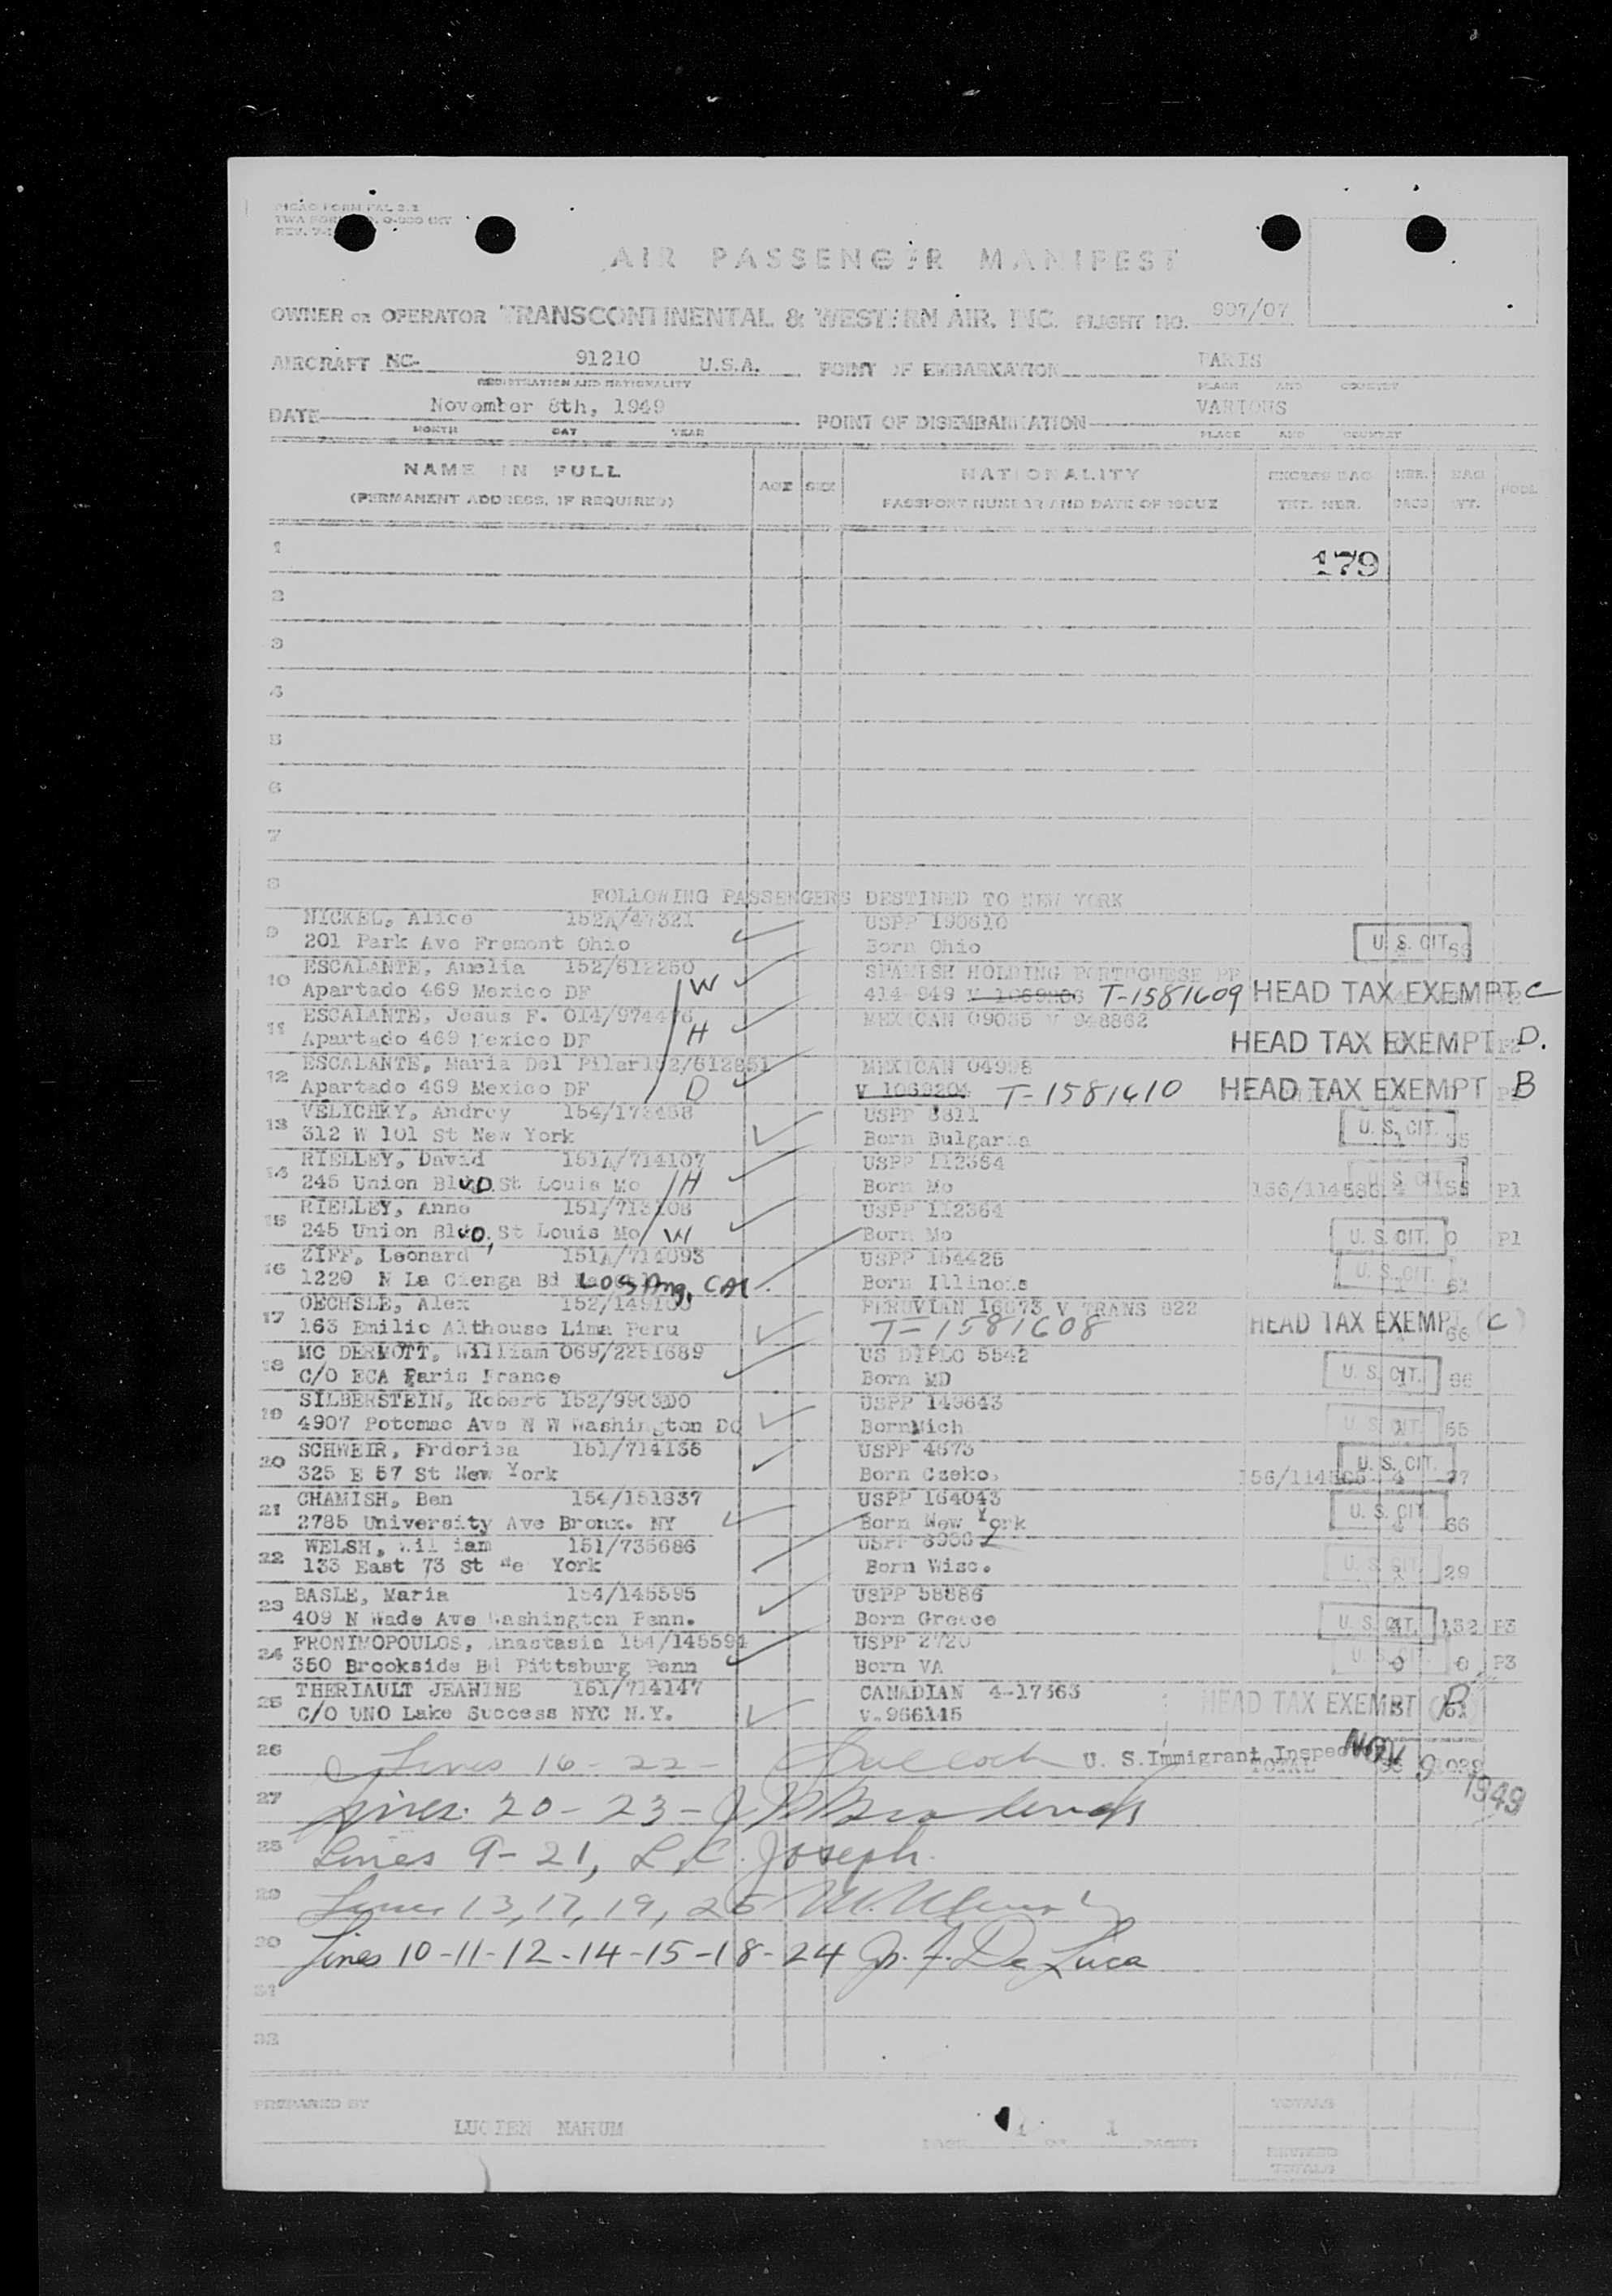 AIR PASSENGER MANIFEST
OWNER OR OPERATOR TRANSCONTINENTAL & WESTERN AIR, INC. FLIGHT NO. 907/07
AIRCRAFT NC- 91210 U.S.A. POINT OF EMBARKATION PARIS
REGISTRATION AND NATIONALITY PLACE AND COUNTRY
DATE November 8th, 1949 POINT OF DISEMBARKATION VARIOUS
MONTH DAY YEAR PLACE AND COUNTRY
NAME IN FULL AGE SEX NATIONALITY EXCESS BAG NBR. BAG POOL
(PERMANENT ADDRESS, IF REQUIRED) PASSPORT NUMBER AND DATE OF ISSUE TKT. NBR. BAGS WT.
1 179
2
3
4
5
6
7
8 FOLLOWING PASSENGERS DESTINED TO NEW YORK
NICKEL, Alice 152A/47321 USPP 190610
9 201 Park Ave Fremont Ohio Born Ohio U. S. CIT.
ESCALANTE, Amelia 152/612250 SPANISH HOLDING PORTUGUESE PP
10 Apartado 469 Mexico DF W 414 949 T-1581609 HEAD TAX EXEMPT C
ESCALANTE, Jesus F. 014/974476 MEXICAN 09035 V 948862
11 Apartado 469 Mexico DF H HEAD TAX EXEMPT D.
ESCALANTE, Maria Del Pilar 152/612251 MEXICAN 04998
12 Apartado 469 Mexico DF D V 1069204 T-1581610 HEAD TAX EXEMPT B
VELICHKY, Andrey 154/172458 USPP 3811
13 312 W 101 St New York Born Bulgaria U. S. CIT.
RIELLEY, David 151A/714107 USPP 112364
14 245 Union Blvd. St Louis Mo H Born Mo 156/114586 S CIT P1
RIELLEY, Anne 151/713108 USPP 112364
15 245 Union Blvd, St Louis Mo W Born Mo U. S. CIT. 0 P1
ZIFF, Leonard 151A/714093 USPP 154425
16 1220 N La Cienga Bd Los Ang, Cal. Born Illinois U. S. CIT. 61
OECHSLE, Alex PERUVIAN 16673 V TRANS 822
17 163 Emilio Althouse Lima Peru T-1581608 HEAD TAX EXEMPT (C)
MC DERMOTT, William 069/2251689 US DIPLO 5542
18 C/O ECA Paris France Born MD U. S. CIT. 66
SILBERSTEIN, Robert 152/9903DO USPP 149643
19 4907 Potomac Ave N W Washington DC BornMich U. S. CIT. 65
SCHWEIR, Frderica 151/714136 USPP 4573
20 325 E 57 St New York Born Czeko. U. S. CIT. 77
CHAMISH, Ben 154/151837 USPP 164043
21 2785 University Ave Bronx. NY Born New York U. S. CIT. 66
WELSH, 151/735686 USPP
22 133 East 73 St York Born Wisc. U. S. CIT. 29
BASLE, Maria 154/145595 USPP 58886
23 409 N Wade Ave Washington Penn. Born Greece U. S. CIT. 132 P3
FRONIMOPOULOS, Anastasia 154/145594 USPP 2720
24 350 Brookside Bd Pittsburg Penn Born VA U. S. CIT. 0 0 P3
THERIAULT JEANINE 151/714147 CANADIAN 4-17363
25 C/O UNO Lake Success NYC N.Y. V.966145 HEAD TAX EXEMPT
26 Lines 16-22- Bullock U. S. Immigrant Inspector TOTAL NOV 9 1949
27 Lines 20-23-
28 Lines 9-21, L. C. Joseph.
29 Lines 13, 17, 19, 25
30 Lines 10-11-12-14-15-18-24 De Luca
31
32
PREPARED BY TOTALS
LUCIEN NAHUM PAGE 1 OF 1 PAGES
REVISED
TOTALS